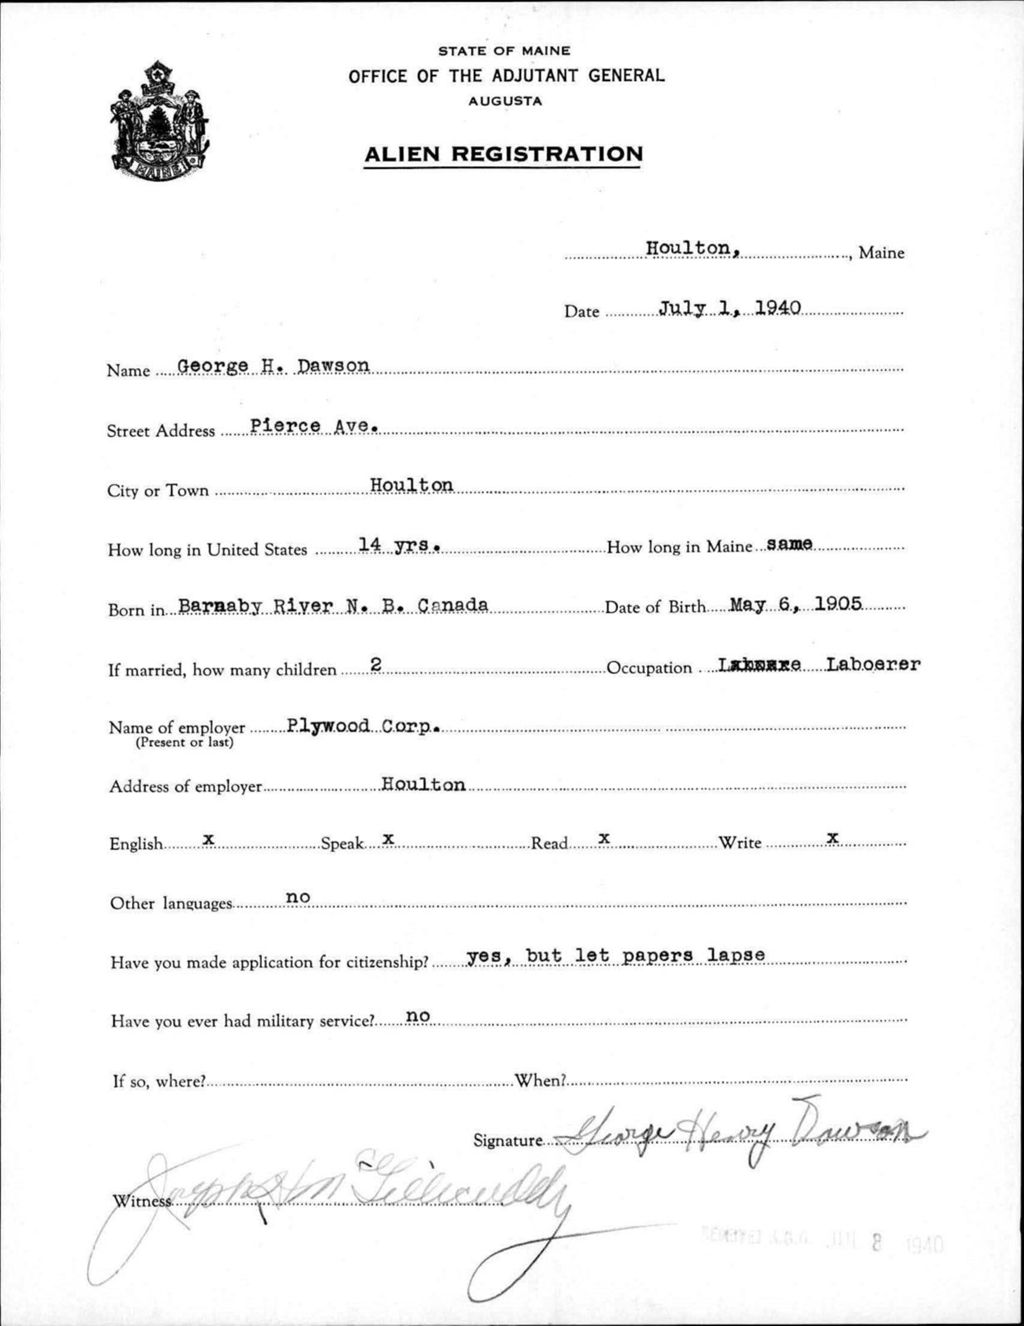 STATE OF MAINE
OFFICE OF THE ADJUTANT GENERAL
AUGUSTA
ALIEN REGISTRATION
MAINE
Houlton, , Maine
Date July 1, 1940
Name George H. Dawson
Street Address Pierce Ave.
City or Town Houlton
How long in United States 14 yrs. How long in Maine same
Born in Barnaby River N. B. Canada Date of Birth May 6, 1905
If married, how many children 2 Occupation Laboerer
Name of employer Plywood Corp.
(Present or last)
Address of employer Houlton
English x Speak x Read x Write x
Other languages no
Have you made application for citizenship? yes, but let papers lapse
Have you ever had military service? no
If so, where? When?
Signature George Henry Dawson
Witness Joseph H McGillicuddy
RECEIVED A.G.O. JUL 8 1940